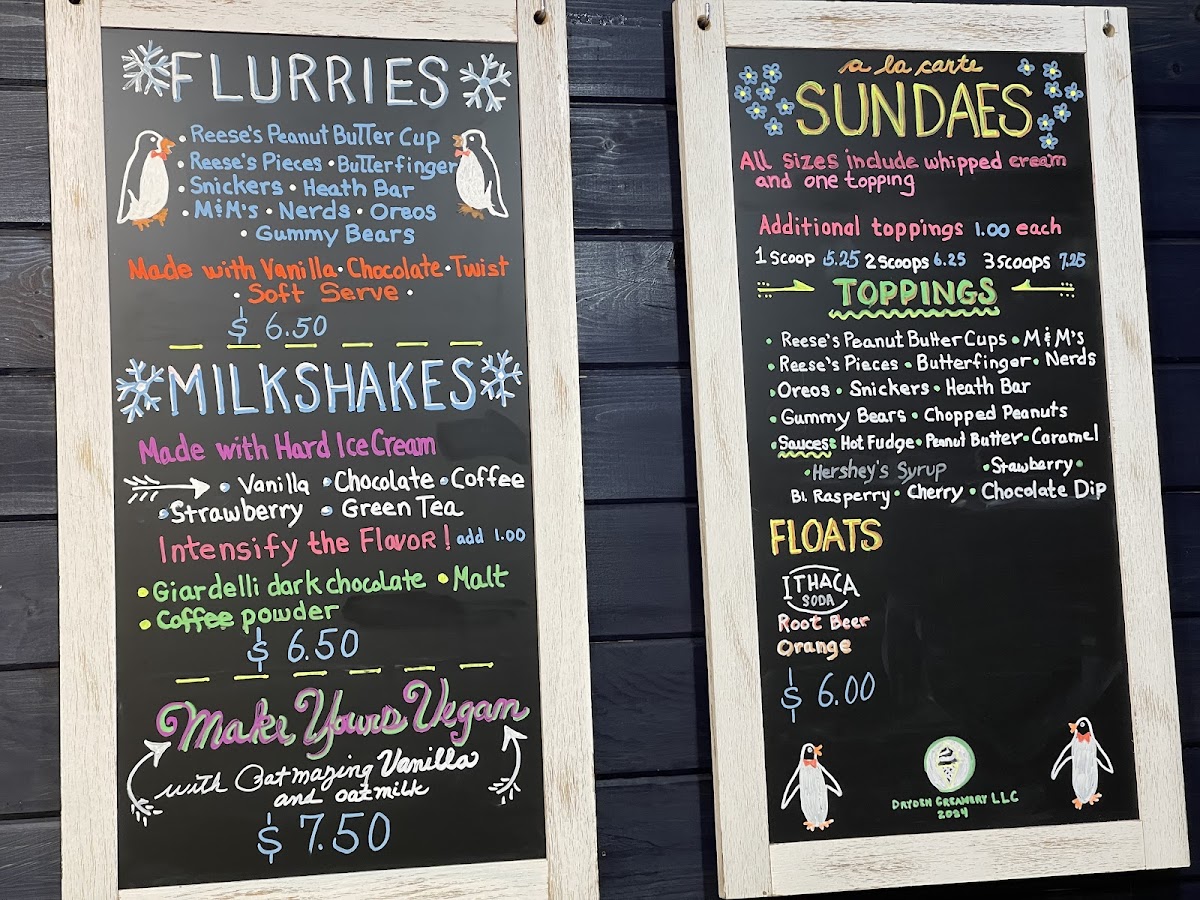 FLURRIES
• Reese's Peanut Butter Cup
• Reese's Pieces • Butterfinger
• Snickers • Heath Bar
• M&M's • Nerds • Oreos
• Gummy Bears
Made with Vanilla • Chocolate • Twist
• Soft Serve •
$ 6.50
MILKSHAKES
Made with Hard Ice Cream
• Vanilla • Chocolate • Coffee
• Strawberry • Green Tea
Intensify the Flavor! add 1.00
• Giardelli dark chocolate • Malt
• Coffee powder
$ 6.50
Make Yours Vegan
with Oatmazing Vanilla
and oatmilk
$ 7.50
a la carte
SUNDAES
All sizes include whipped cream
and one topping
Additional toppings 1.00 each
1 scoop 5.25 2 scoops 6.25 3 scoops 7.25
TOPPINGS
• Reese's Peanut Butter Cups • M&M's
• Reese's Pieces • Butterfinger • Nerds
• Oreos • Snickers • Heath Bar
• Gummy Bears • Chopped Peanuts
• Sauces: Hot Fudge • Peanut Butter • Caramel
• Hershey's Syrup • Stawberry •
Bl. Rasperry • Cherry • Chocolate Dip
FLOATS
ITHACA
SODA
Root Beer
Orange
$ 6.00
DRYDEN CREAMERY LLC
2024